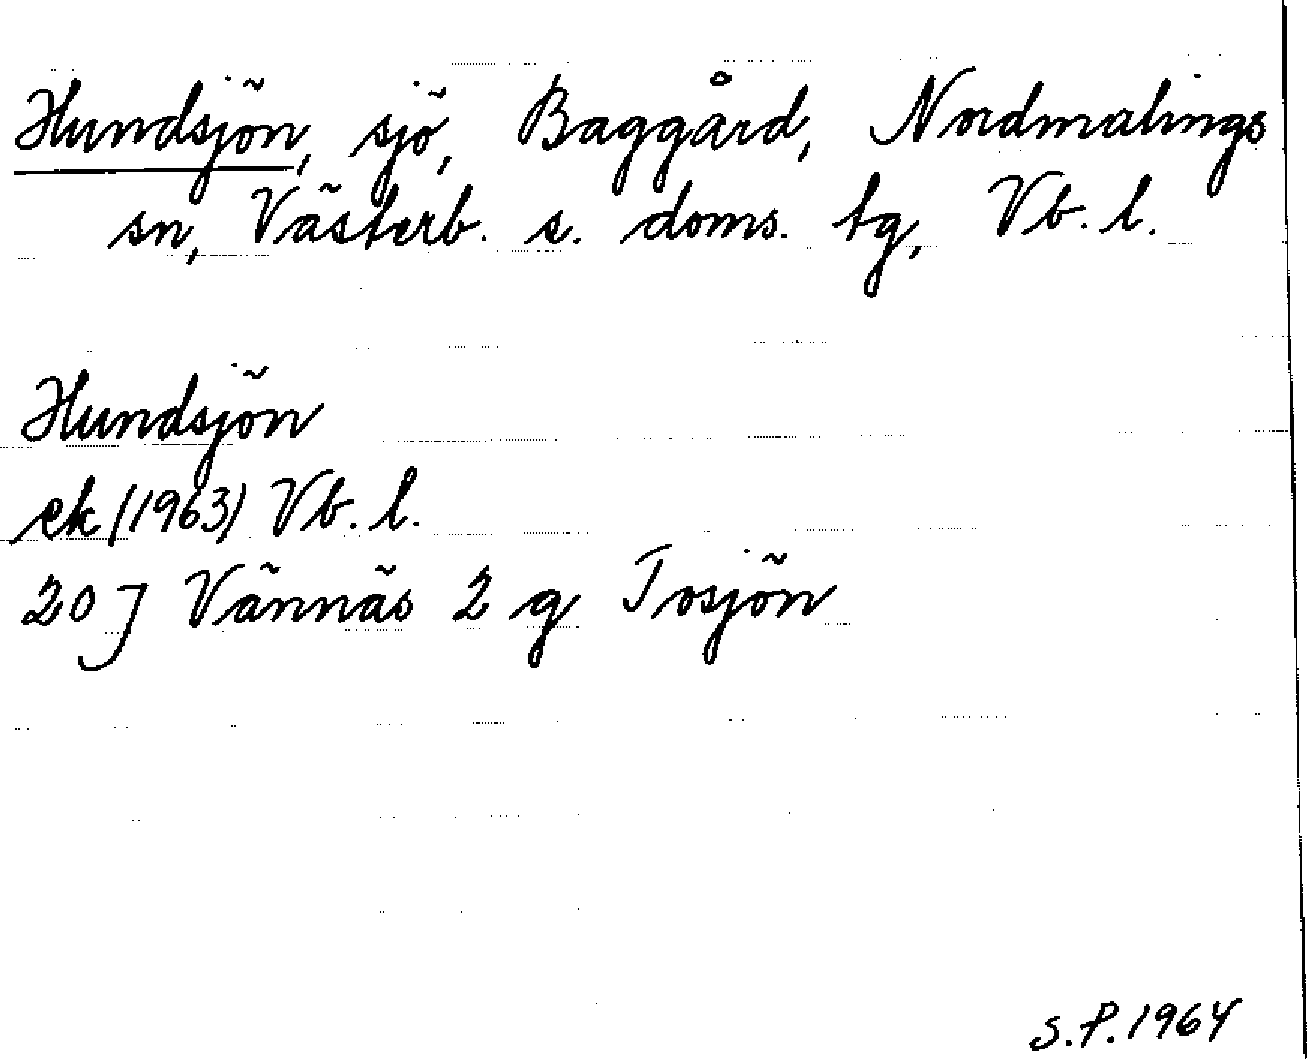 Hundsjön, sjö, Baggård, Nordmalings
sn, Västerb. s. doms. tg, Vb. l.
Hundsjön
ek (1963) Vb. l.
20 J Vännäs 2 g Tosjön
S.P. 1964